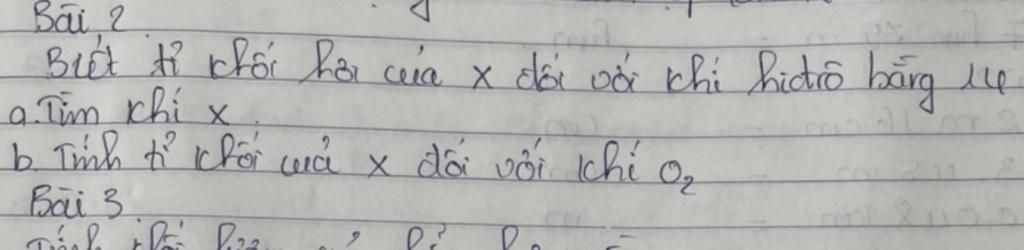 Bài 2
Biết tỉ khối hơi của x đối với khí hidrô bằng 14
a. Tìm khí x.
b. Tính tỉ khối của x đối với khí O2
Bài 3
Tính khối